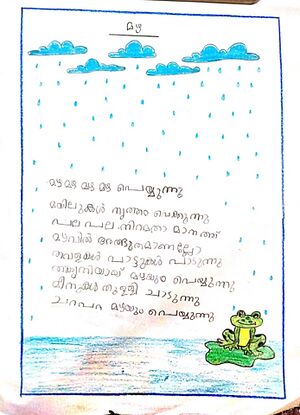 മഴ
മഴ മഴ മഴ മഴ പെയ്യുന്നു
മയിലുകൾ നൃത്തം വെക്കുന്നു
പല പല നിറമതാ മാനത്ത്
മഴവിൽ അത്ഭുതമാണല്ലോ
തവളകൾ പാട്ടുകൾ പാടുന്നു
മഴയും പെയ്യുന്നു
മീനുകൾ തുള്ളി ചാടുന്നു
ചറപറ മഴയും പെയ്യുന്നു